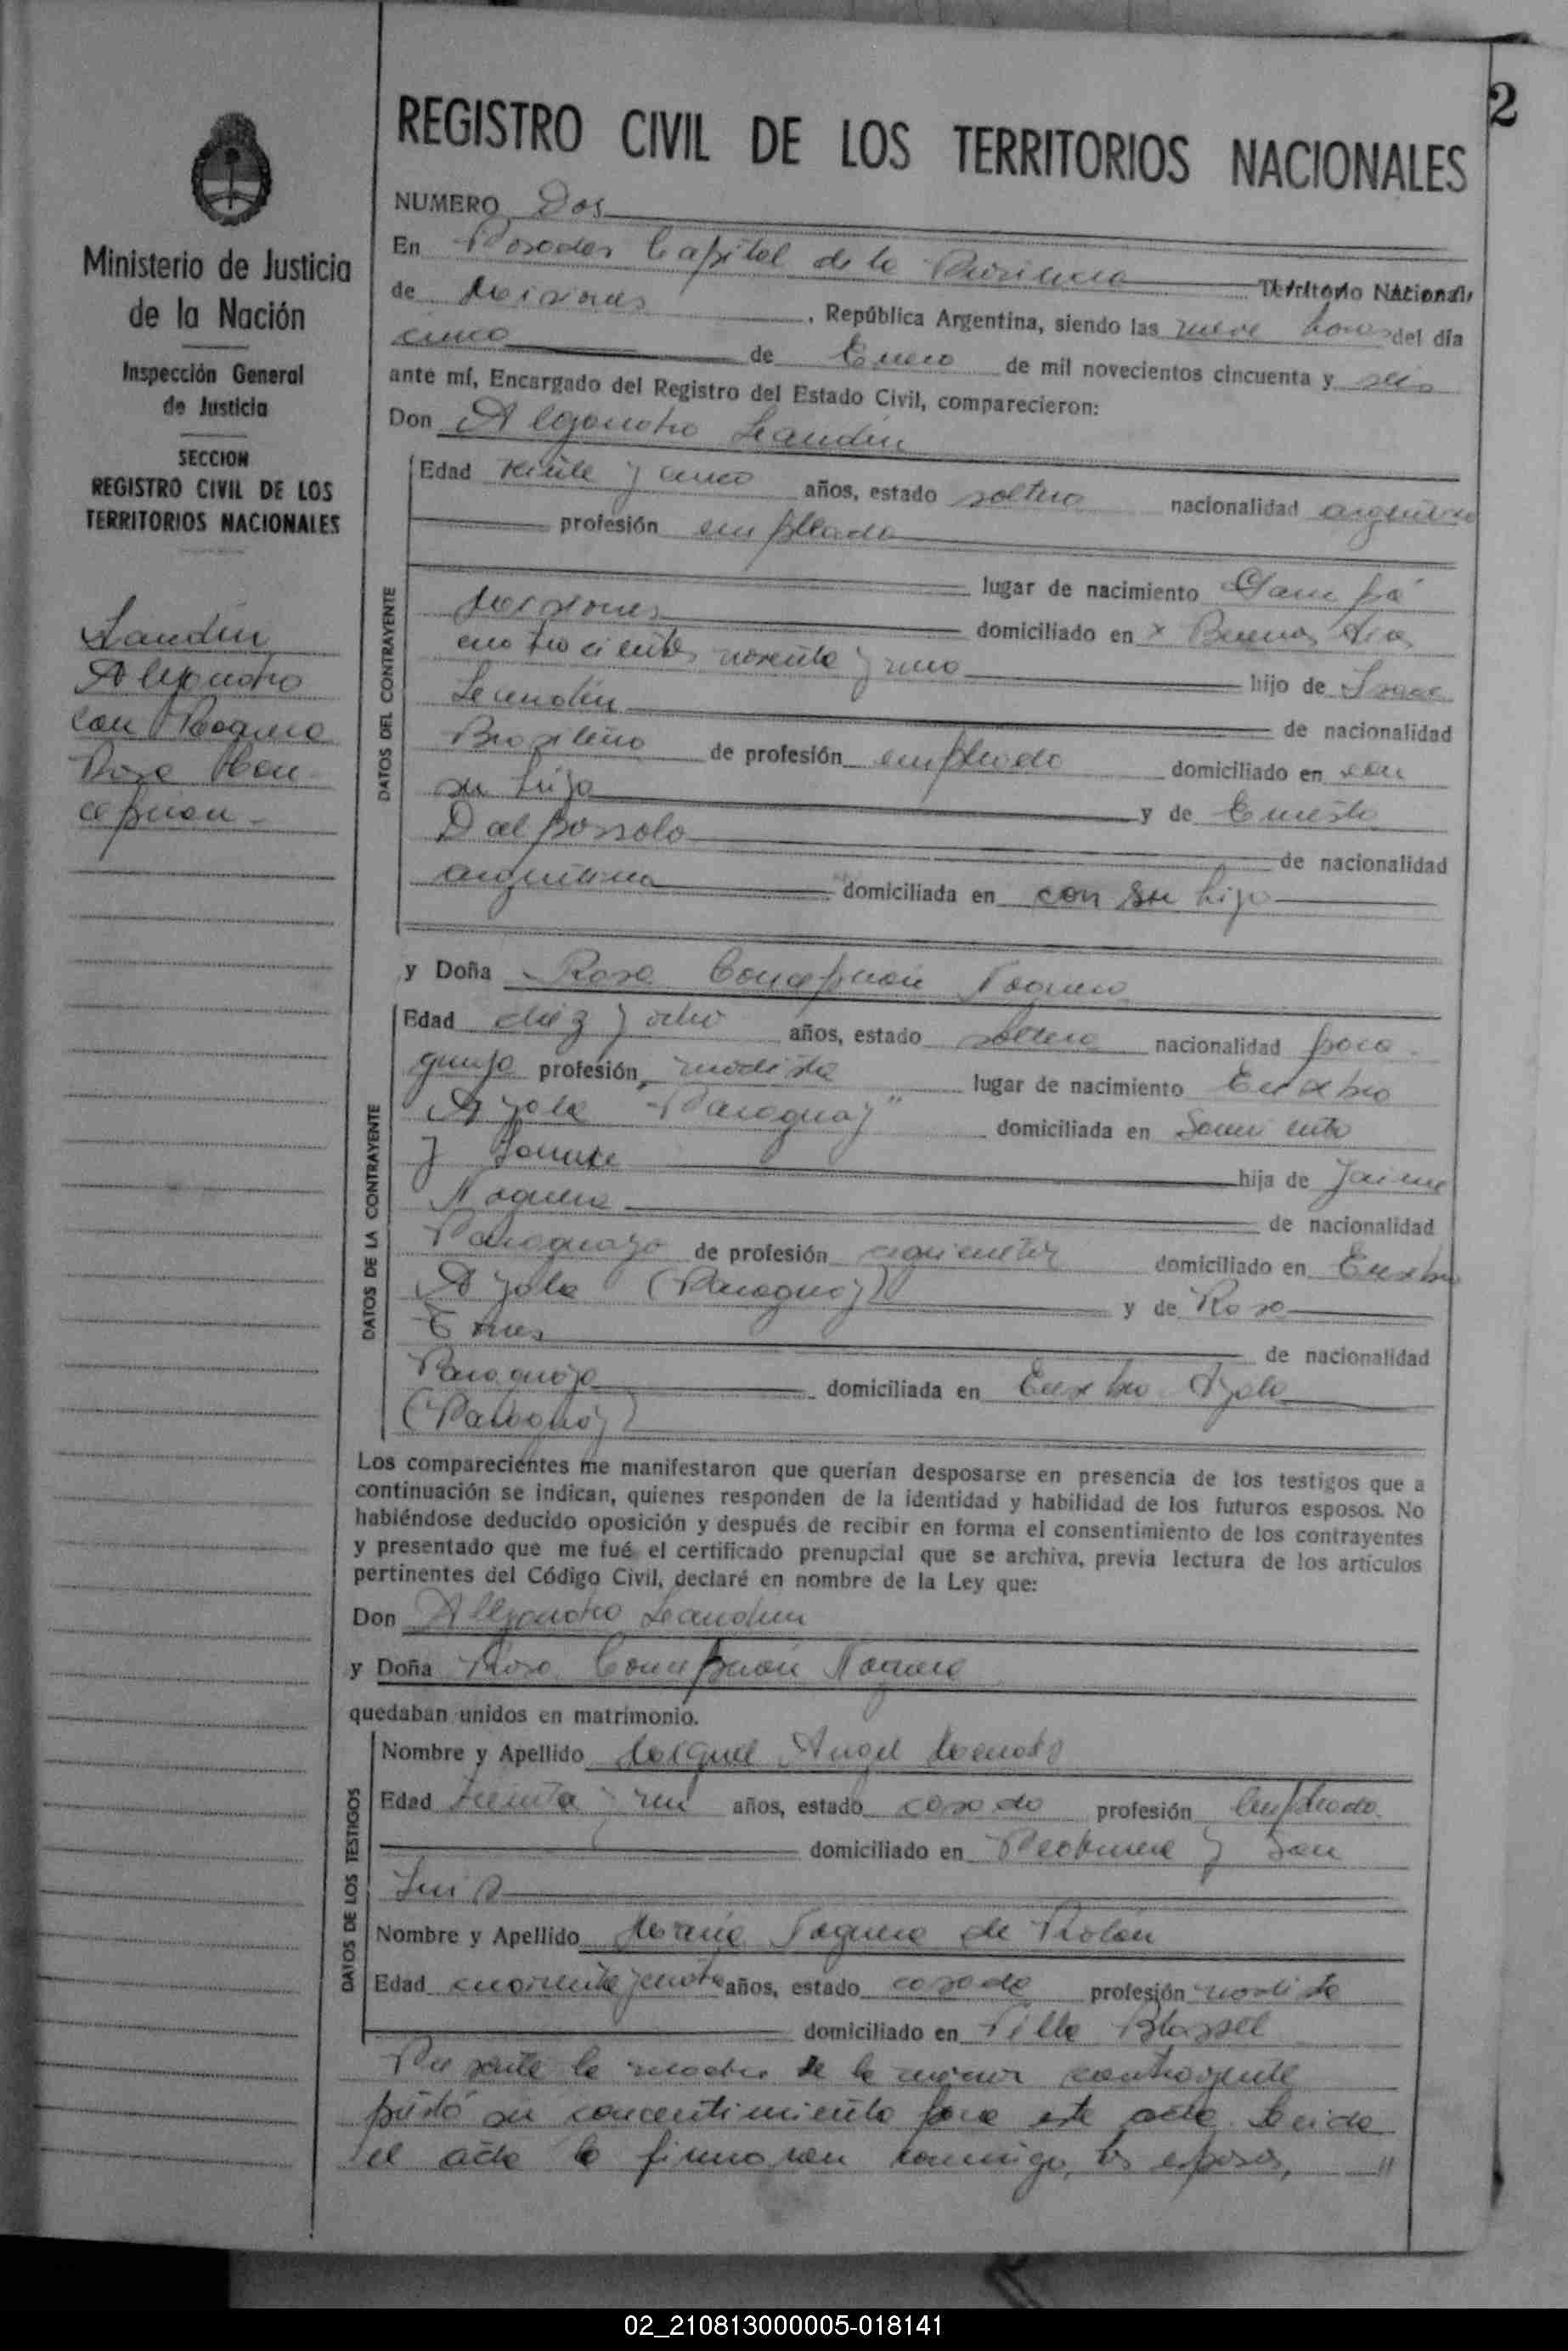 2
REGISTRO CIVIL DE LOS TERRITORIOS NACIONALES
Ministerio de Justicia
de la Nación
Inspección General
de Justicia
SECCION
REGISTRO CIVIL DE LOS
TERRITORIOS NACIONALES
Landin
Alejandro
con Noguera
Rosa Con-
cepcion -
NUMERO Dos
En Posadas Capital de la Provincia Territorio Nacional
de Misiones, República Argentina, siendo las nueve horas del día
cinco de Enero de mil novecientos cincuenta y seis
ante mí, Encargado del Registro del Estado Civil, comparecieron:
Don Alejandro Leandin
DATOS DEL CONTRAYENTE
Edad veinte y cinco años, estado soltero nacionalidad argentino
profesión empleado
lugar de nacimiento
Misiones domiciliado en Buenos Aires
cuatrocientos noventa y uno hijo de
Leandin de nacionalidad
Brasileño de profesión empleado domiciliado en con
su hijo y de Ernesta
Dalpossolo de nacionalidad
argentina domiciliada en con su hijo
y Doña Rosa Concepción Noguera
DATOS DE LA CONTRAYENTE
Edad diez y ocho años, estado soltera nacionalidad para-
guaya profesión modista lugar de nacimiento Eusebio
Ayala "Paraguay" domiciliada en Sarmiento
y hija de Jaime
Noguera de nacionalidad
Paraguayo de profesión agricultor domiciliado en Eusebio
Ayala (Paraguay) y de Rosa
de nacionalidad
Paraguaya domiciliada en Eusebio Ayala
(Paraguay)
Los comparecientes me manifestaron que querían desposarse en presencia de los testigos que a
continuación se indican, quienes responden de la identidad y habilidad de los futuros esposos. No
habiéndose deducido oposición y después de recibir en forma el consentimiento de los contrayentes
y presentado que me fué el certificado prenupcial que se archiva, previa lectura de los artículos
pertinentes del Código Civil, declaré en nombre de la Ley que:
Don Alejandro Leandin
y Doña Rosa Concepción Noguera
quedaban unidos en matrimonio.
DATOS DE LOS TESTIGOS
Nombre y Apellido Miguel Angel
Edad treinta y un años, estado casado profesión empleado
domiciliado en y San
Luis
Nombre y Apellido María Noguera de Rolón
Edad cuarenta y cuatro años, estado casada profesión modista
domiciliado en Villa Blosset
Presente la madre de la menor contrayente
prestó su concentimiento para este acto. Leida
el acta la firmaron conmigo, los esposos, "
02_210813000005-018141